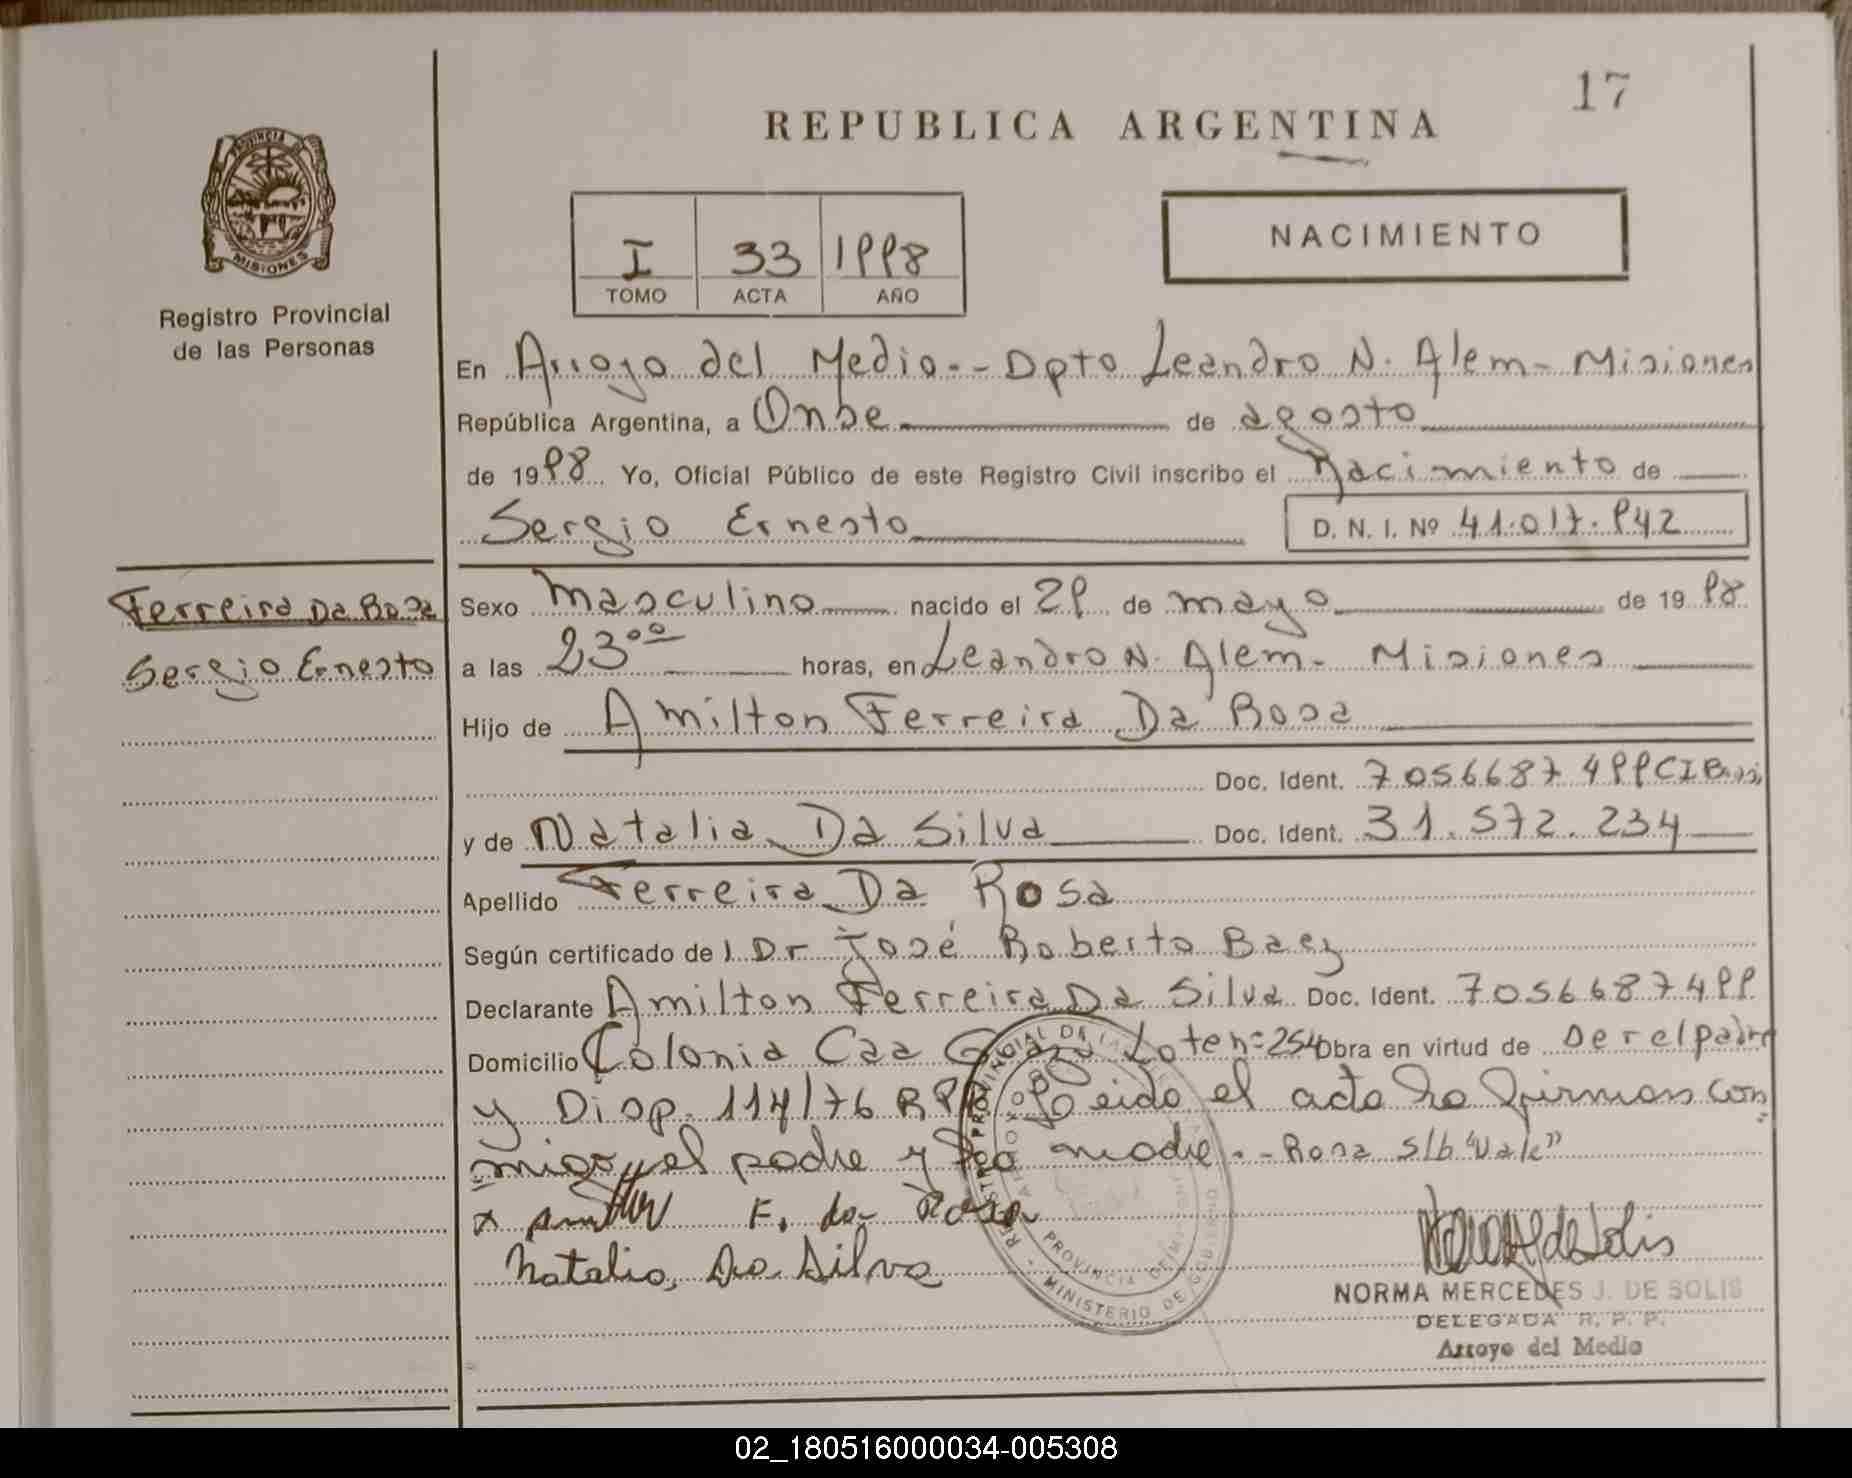 17
REPUBLICA ARGENTINA
PROVINCIA DE
MISIONES
Registro Provincial
de las Personas
I 33 1998
TOMO ACTA AÑO
NACIMIENTO
En Arroyo del Medio.-- Dpto Leandro N. Alem - Misiones
República Argentina, a Onse de agosto
de 1998 Yo, Oficial Público de este Registro Civil inscribo el Nacimiento de
Sergio Ernesto D. N. I. Nº 41.017.942
Ferreira Da Rosa
Sergio Ernesto
Sexo Masculino nacido el 29 de mayo de 1998
a las 23⁰⁰ horas, en Leandro N. Alem - Misiones
Hijo de Amilton Ferreira Da Rosa
Doc. Ident. 7056687499 CI
y de Natalia Da Silva Doc. Ident. 31.572.234
Apellido Ferreira Da Rosa
Según certificado de l Dr José Roberto Baez
Declarante Amilton Ferreira Da Silva Doc. Ident. 7056687499
Domicilio Colonia Caa Guazu Lote nº 254 Obra en virtud de Ser el padre
y Disp. 114/76 RPP Leida el acta la firman con
migo el padre y la madre.- Rosa s/b "Vale"
x F. da Rosa
Natalia, Da Silva
REGISTRO PROVINCIAL DE LAS PERSONAS
PROVINCIA DE MISIONES
MINISTERIO DE GOBIERNO
NORMA MERCEDES J. DE SOLIS
DELEGADA R. P. P.
Arroyo del Medio
02_180516000034-005308